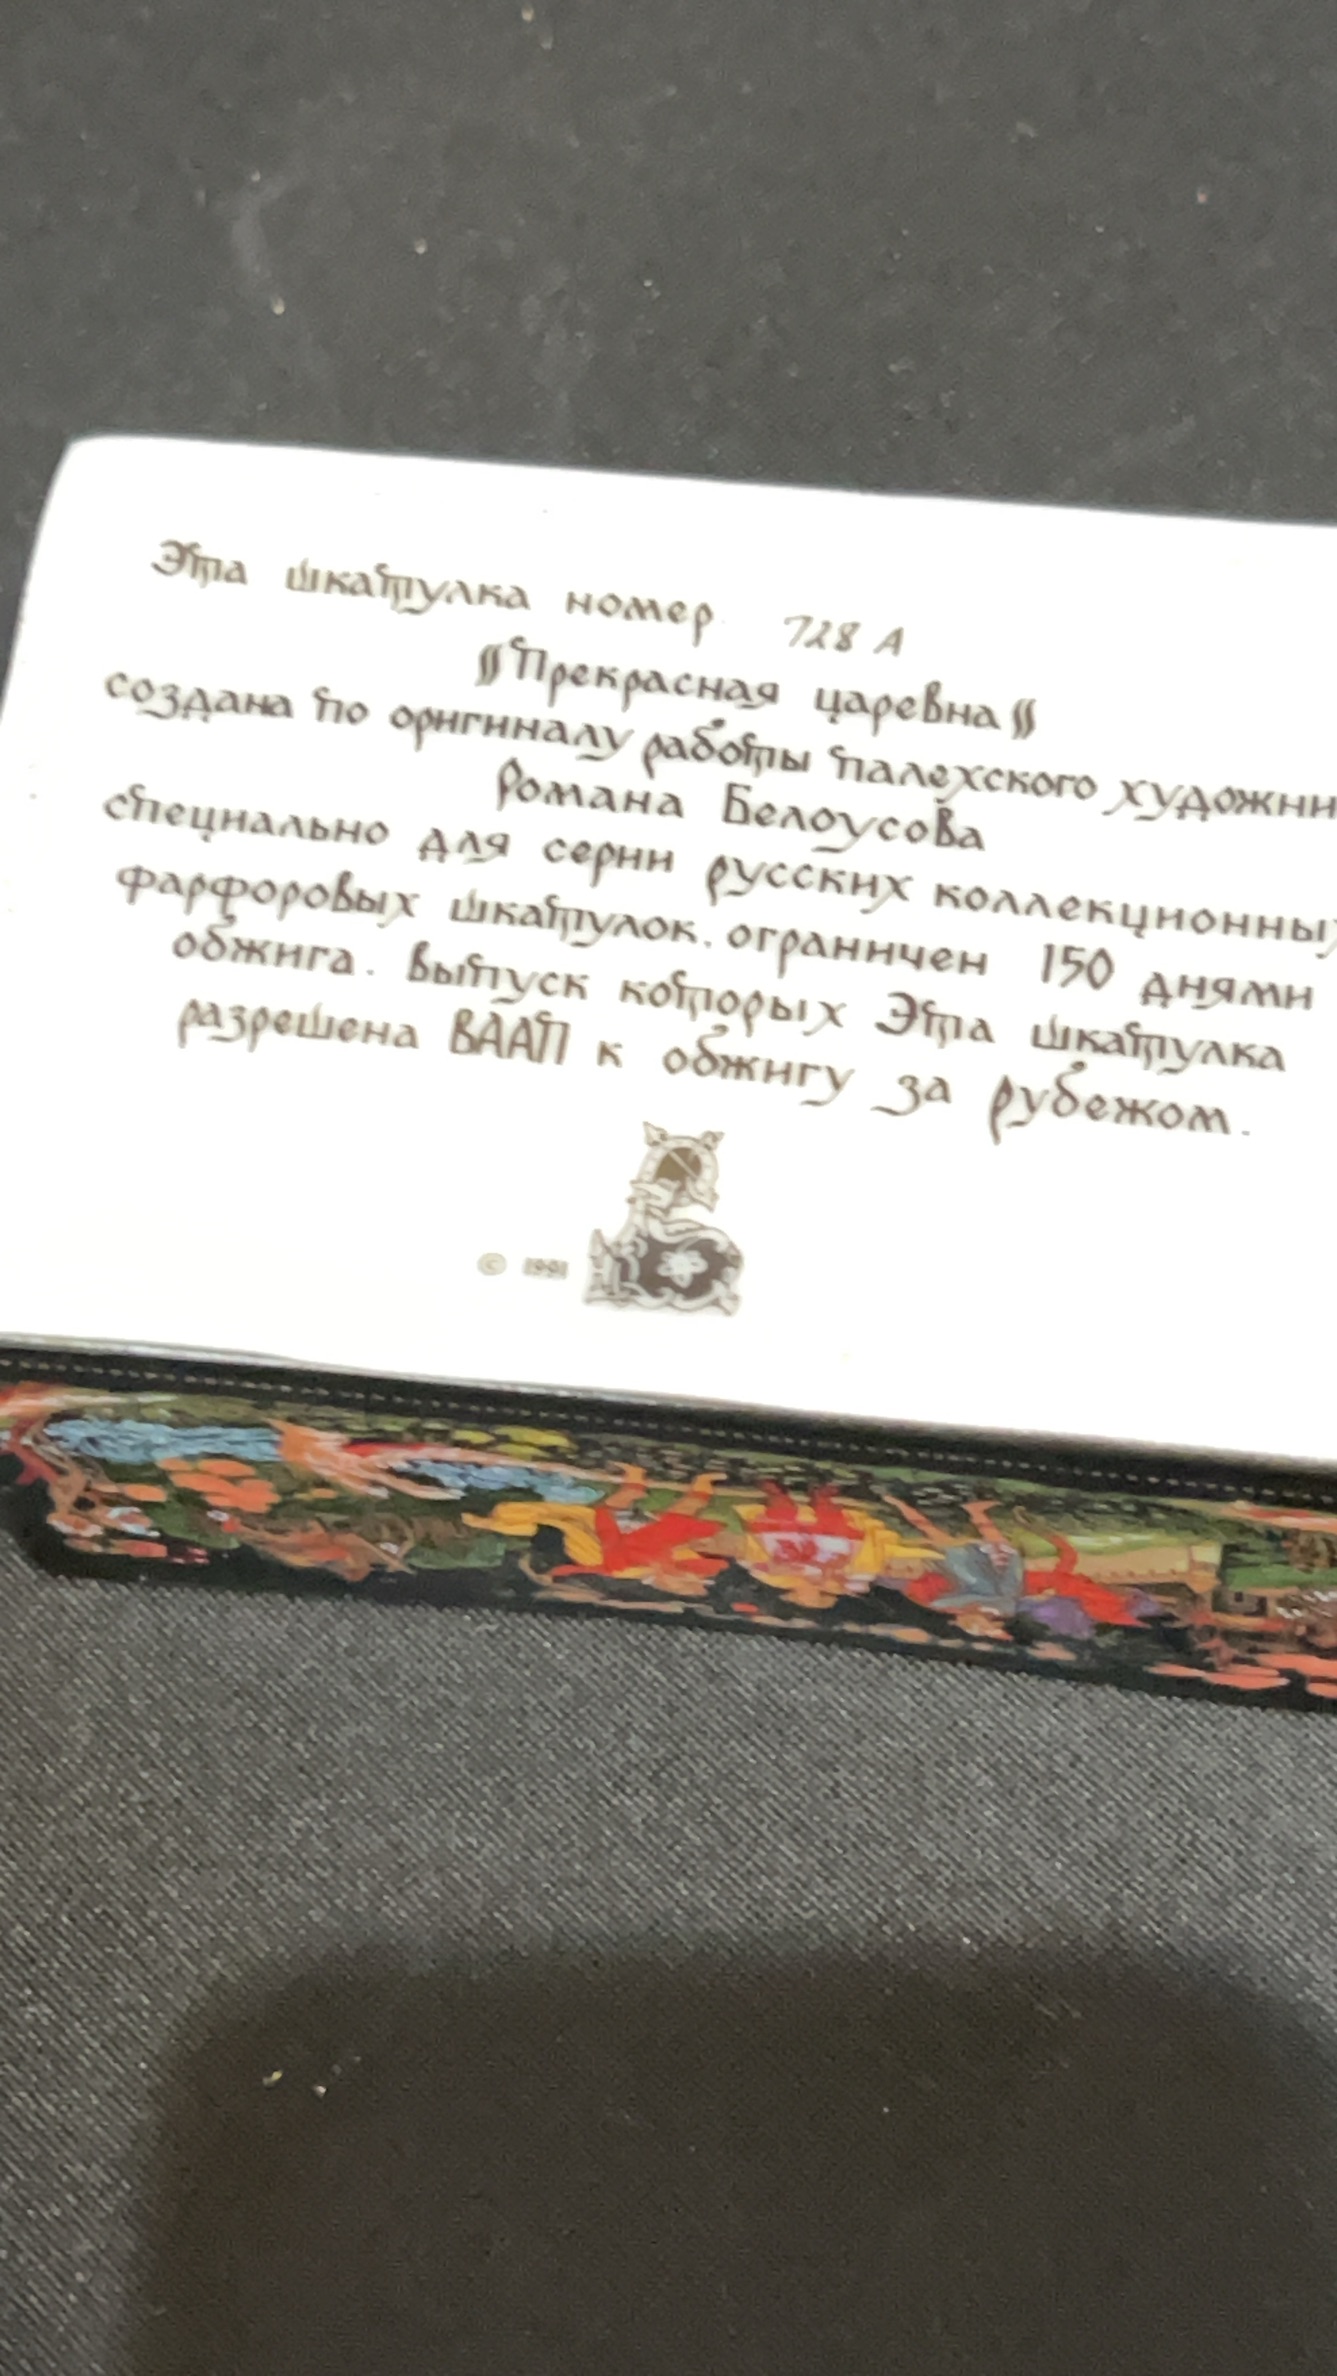 Эта шкатулка номер 728 А
"Прекрасная царевна"
создана по оригиналу работы палехского художни
Романа Белоусова
специально для серии русских коллекционных
фарфоровых шкатулок, ограничен 150 днями
обжига. Выпуск которых Эта шкатулка
разрешена ВААП к обжигу за рубежом.
© 1991